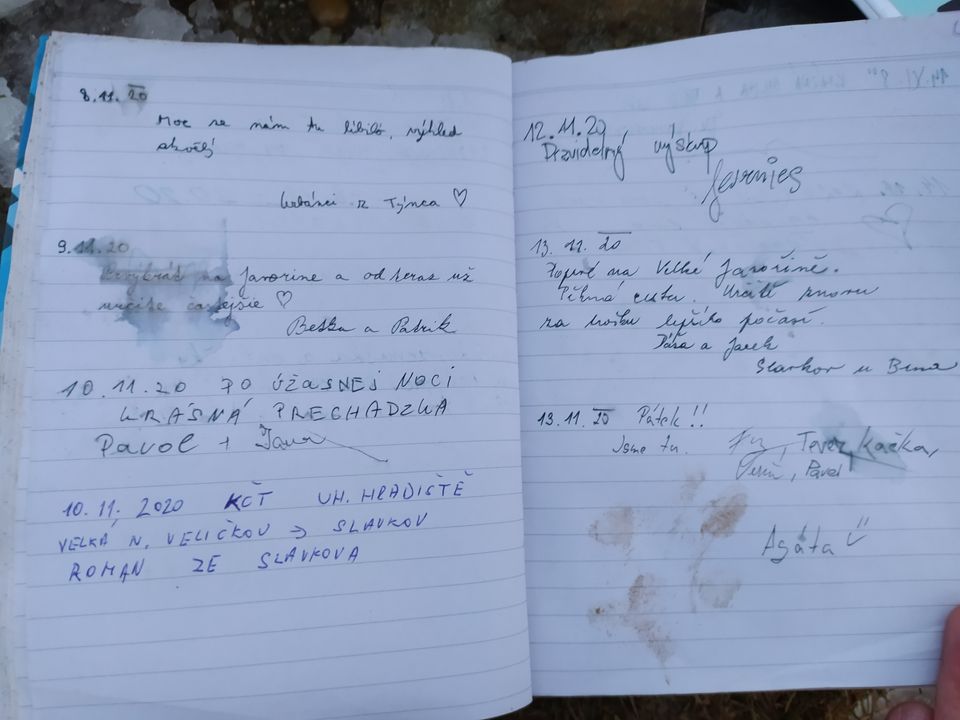 8.11.20
Moc se nám tu líbilo, výhled
skvělý
Urbánci z Týnca ♡
9.11.20
na Javorine a od teraz už
určite častejšie ♡
Beťka a Patrik
10.11.20 PO ÚŽASNEJ NOCI
KRÁSNÁ PRECHADZKA
Pavol + Jana
10.11.2020 KČT UH. HRADIŠTĚ
VELKÁ N. VELIČKOU → SLAVKOV
ROMAN ZE SLAVKOVA
12.11.20
Pravidelný výstup
13.11.20
na Velké Javořině.
Pěkná cesta. Určitě znovu
za trošku lepšího počasí.
Páťa a Jarek
Slavkov u Brna
13.11.20 Pátek!!
Jsme tu.
Kačka,
Pavel
Agáta